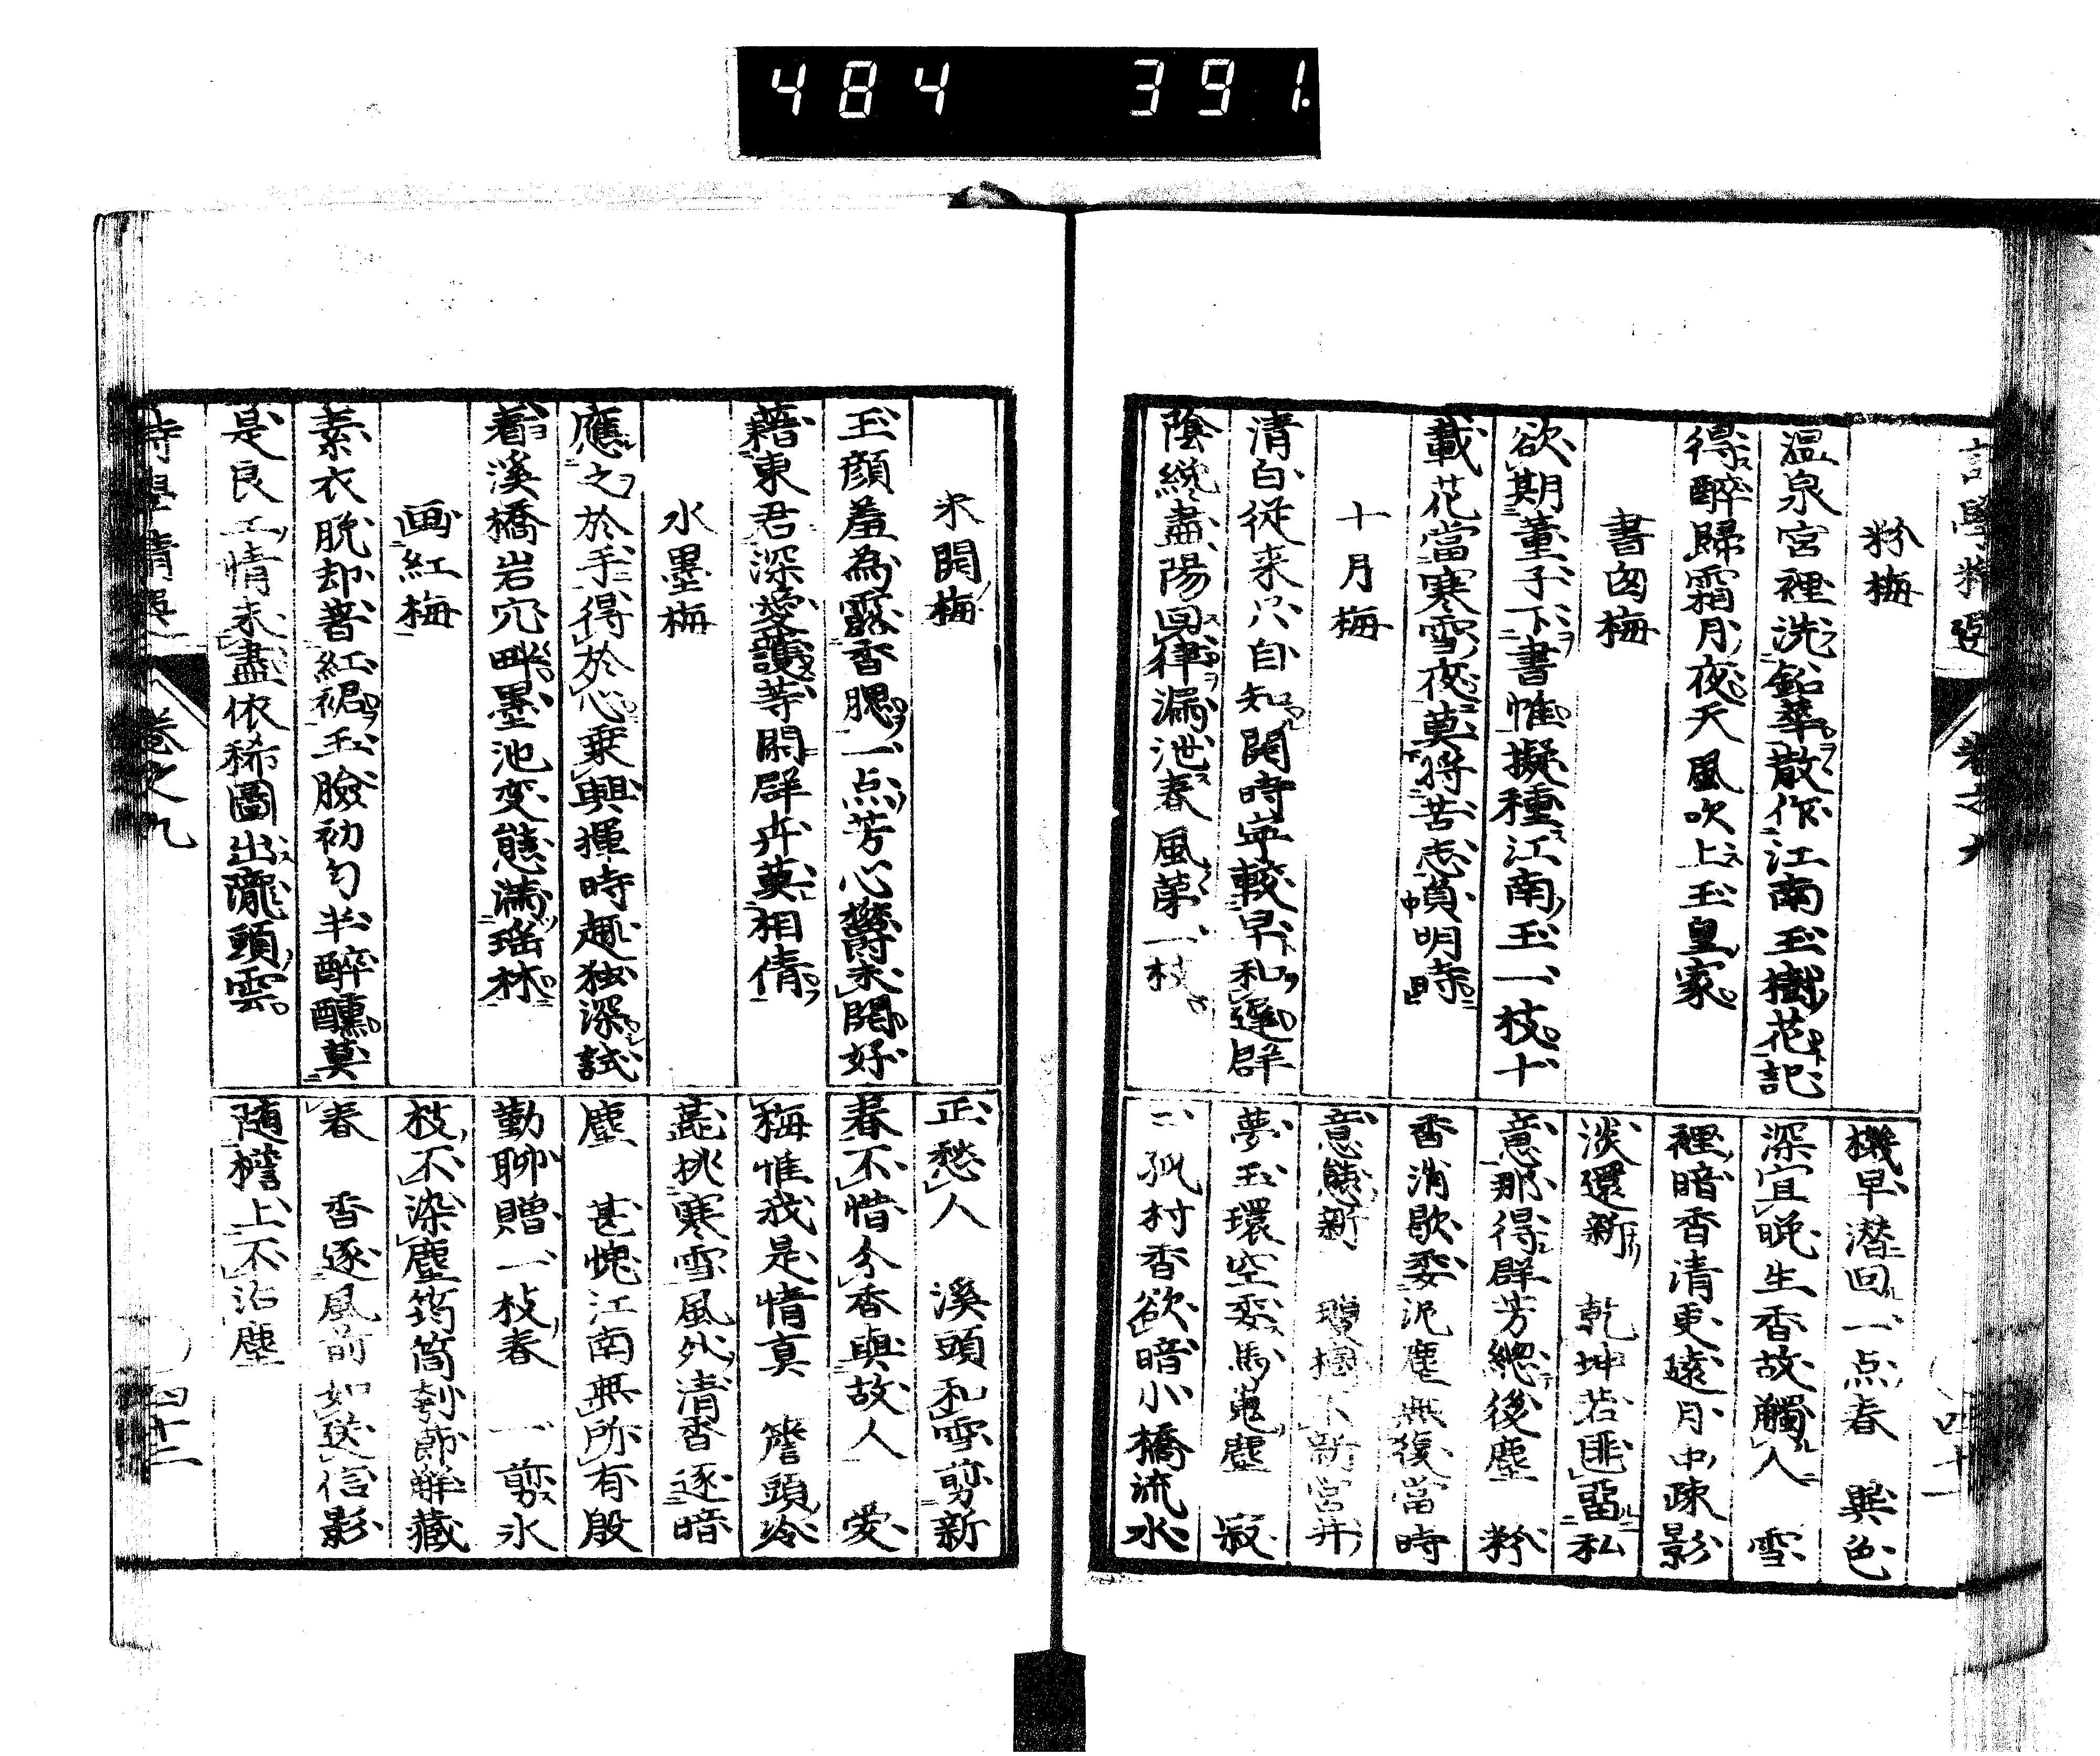 484 391.
粉梅
温泉宮裡洗鉛華散作江南玉樹花記
得醉歸霜月夜天風吹上玉皇家
書囱梅
欲期董子下書惟擬種江南玉一枝十
載花當寒雪夜莫将苦志負明時
十月梅
清白従来只自知開時寧較早和遅群
陰纔盡陽回律漏泄春風第一枝
機早潜回一点春 異色
深宜晩生香故觸人 雪
裡暗香清更遠月中疎影
淡還新 乾坤若匪惡私
意那得群芳總後塵 粉
香消歇委泥塵無復當時
意態新 新宮井
夢玉環空委馬嵬塵 寂
〻孤村香欲暗小橋流水
未開梅
玉顔羞為露香腮一点芳心欝未開好
藉東君深愛護等閑群卉莫相倩
水墨梅
應之於手得於心乗興揮時趣独深試
看溪橋岩穴畔墨池变態満瑶林
画紅梅
素衣脱却着紅裙玉臉初匀半醉醺莫
是良工情未盡依稀圖出隴頭雲
正愁人 溪頭和雪剪新
春不惜分香與故人 愛
梅惟我是情真 簷頭冷
蕋挑寒雪風外清香逐暗
塵 甚愧江南無所有殷
勤聊贈一枝春 一剪氷
枝不染塵筠筒刳節觧藏
春 香逐風前如送信影
随檐上不沾塵
巻之九
四十二